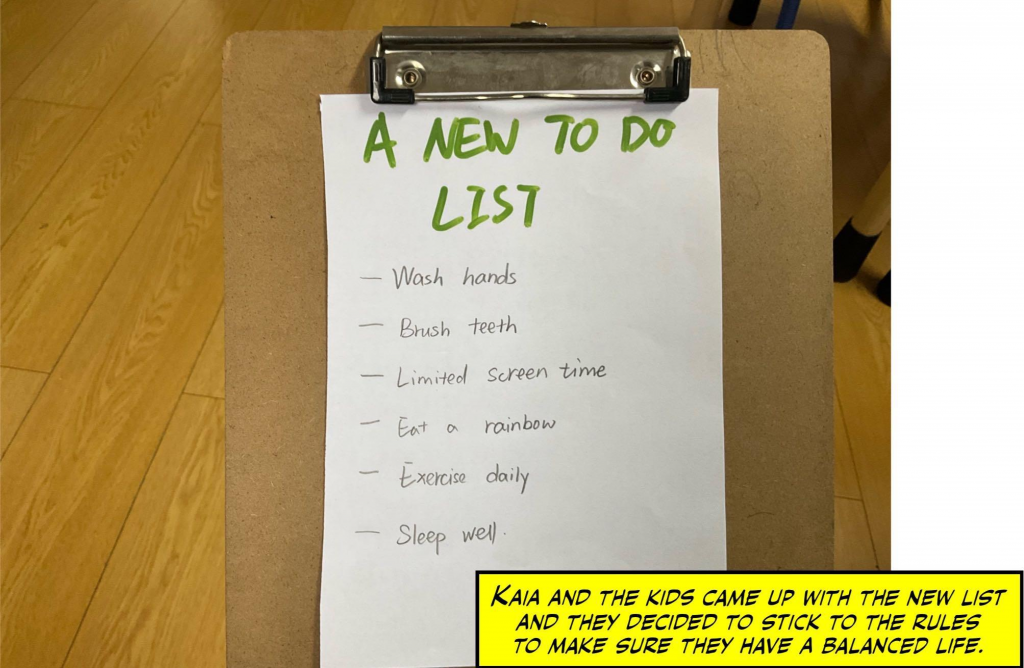 A NEW TO DO
LIST
— Wash hands
— Brush teeth
— Limited screen time
— Eat a rainbow
— Exercise daily
— Sleep well.
KAIA AND THE KIDS CAME UP WITH THE NEW LIST
AND THEY DECIDED TO STICK TO THE RULES
TO MAKE SURE THEY HAVE A BALANCED LIFE.